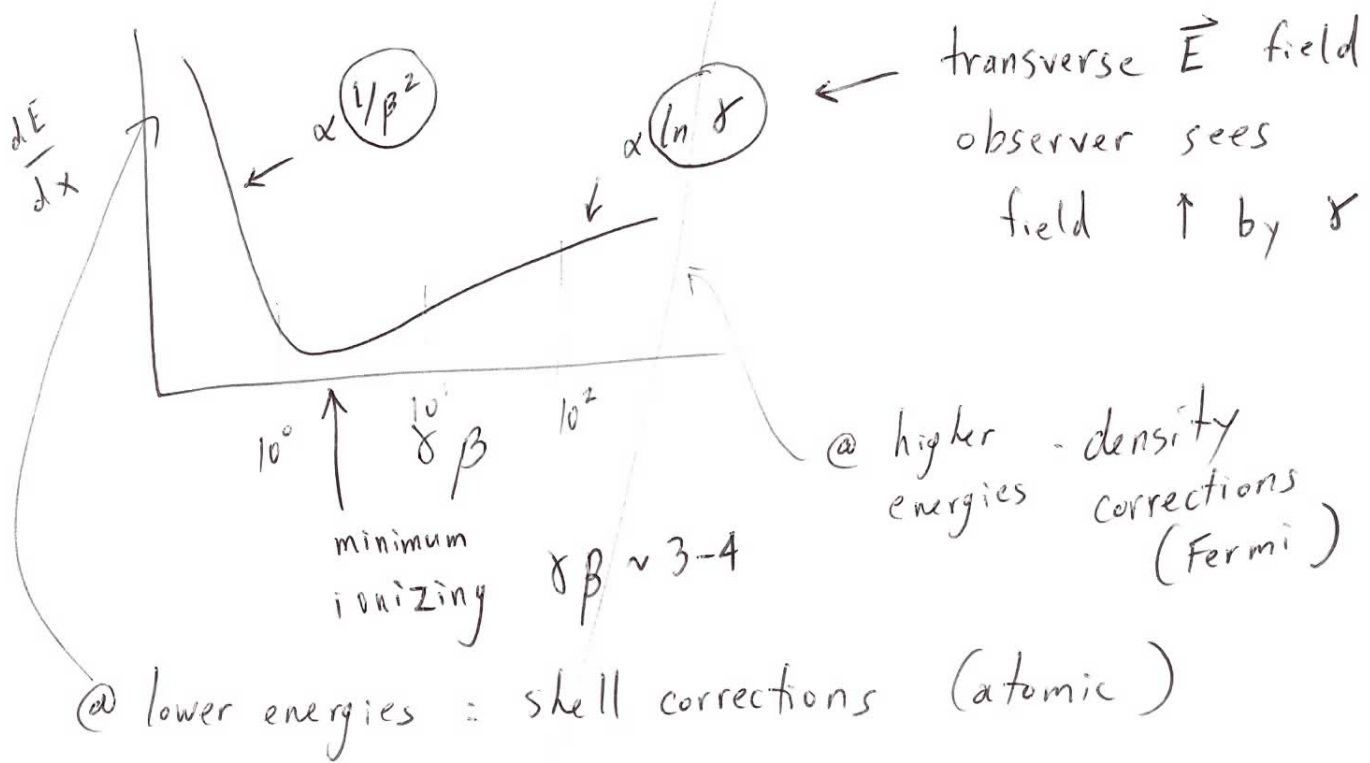 dE
dx
∝ 1/β²
∝ ln γ
transverse E⃗ field
observer sees
field ↑ by γ
10⁰
10¹
10²
γβ
minimum
ionizing
γβ ~ 3-4
@ higher - density
energies corrections
(Fermi)
@ lower energies : shell corrections (atomic)